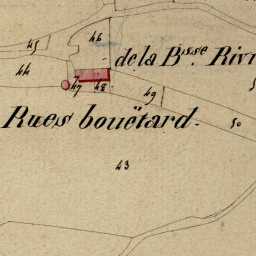 45
46
44
de la Bsse. Rivi
47
48
49
50
Rues bouëtard.
43